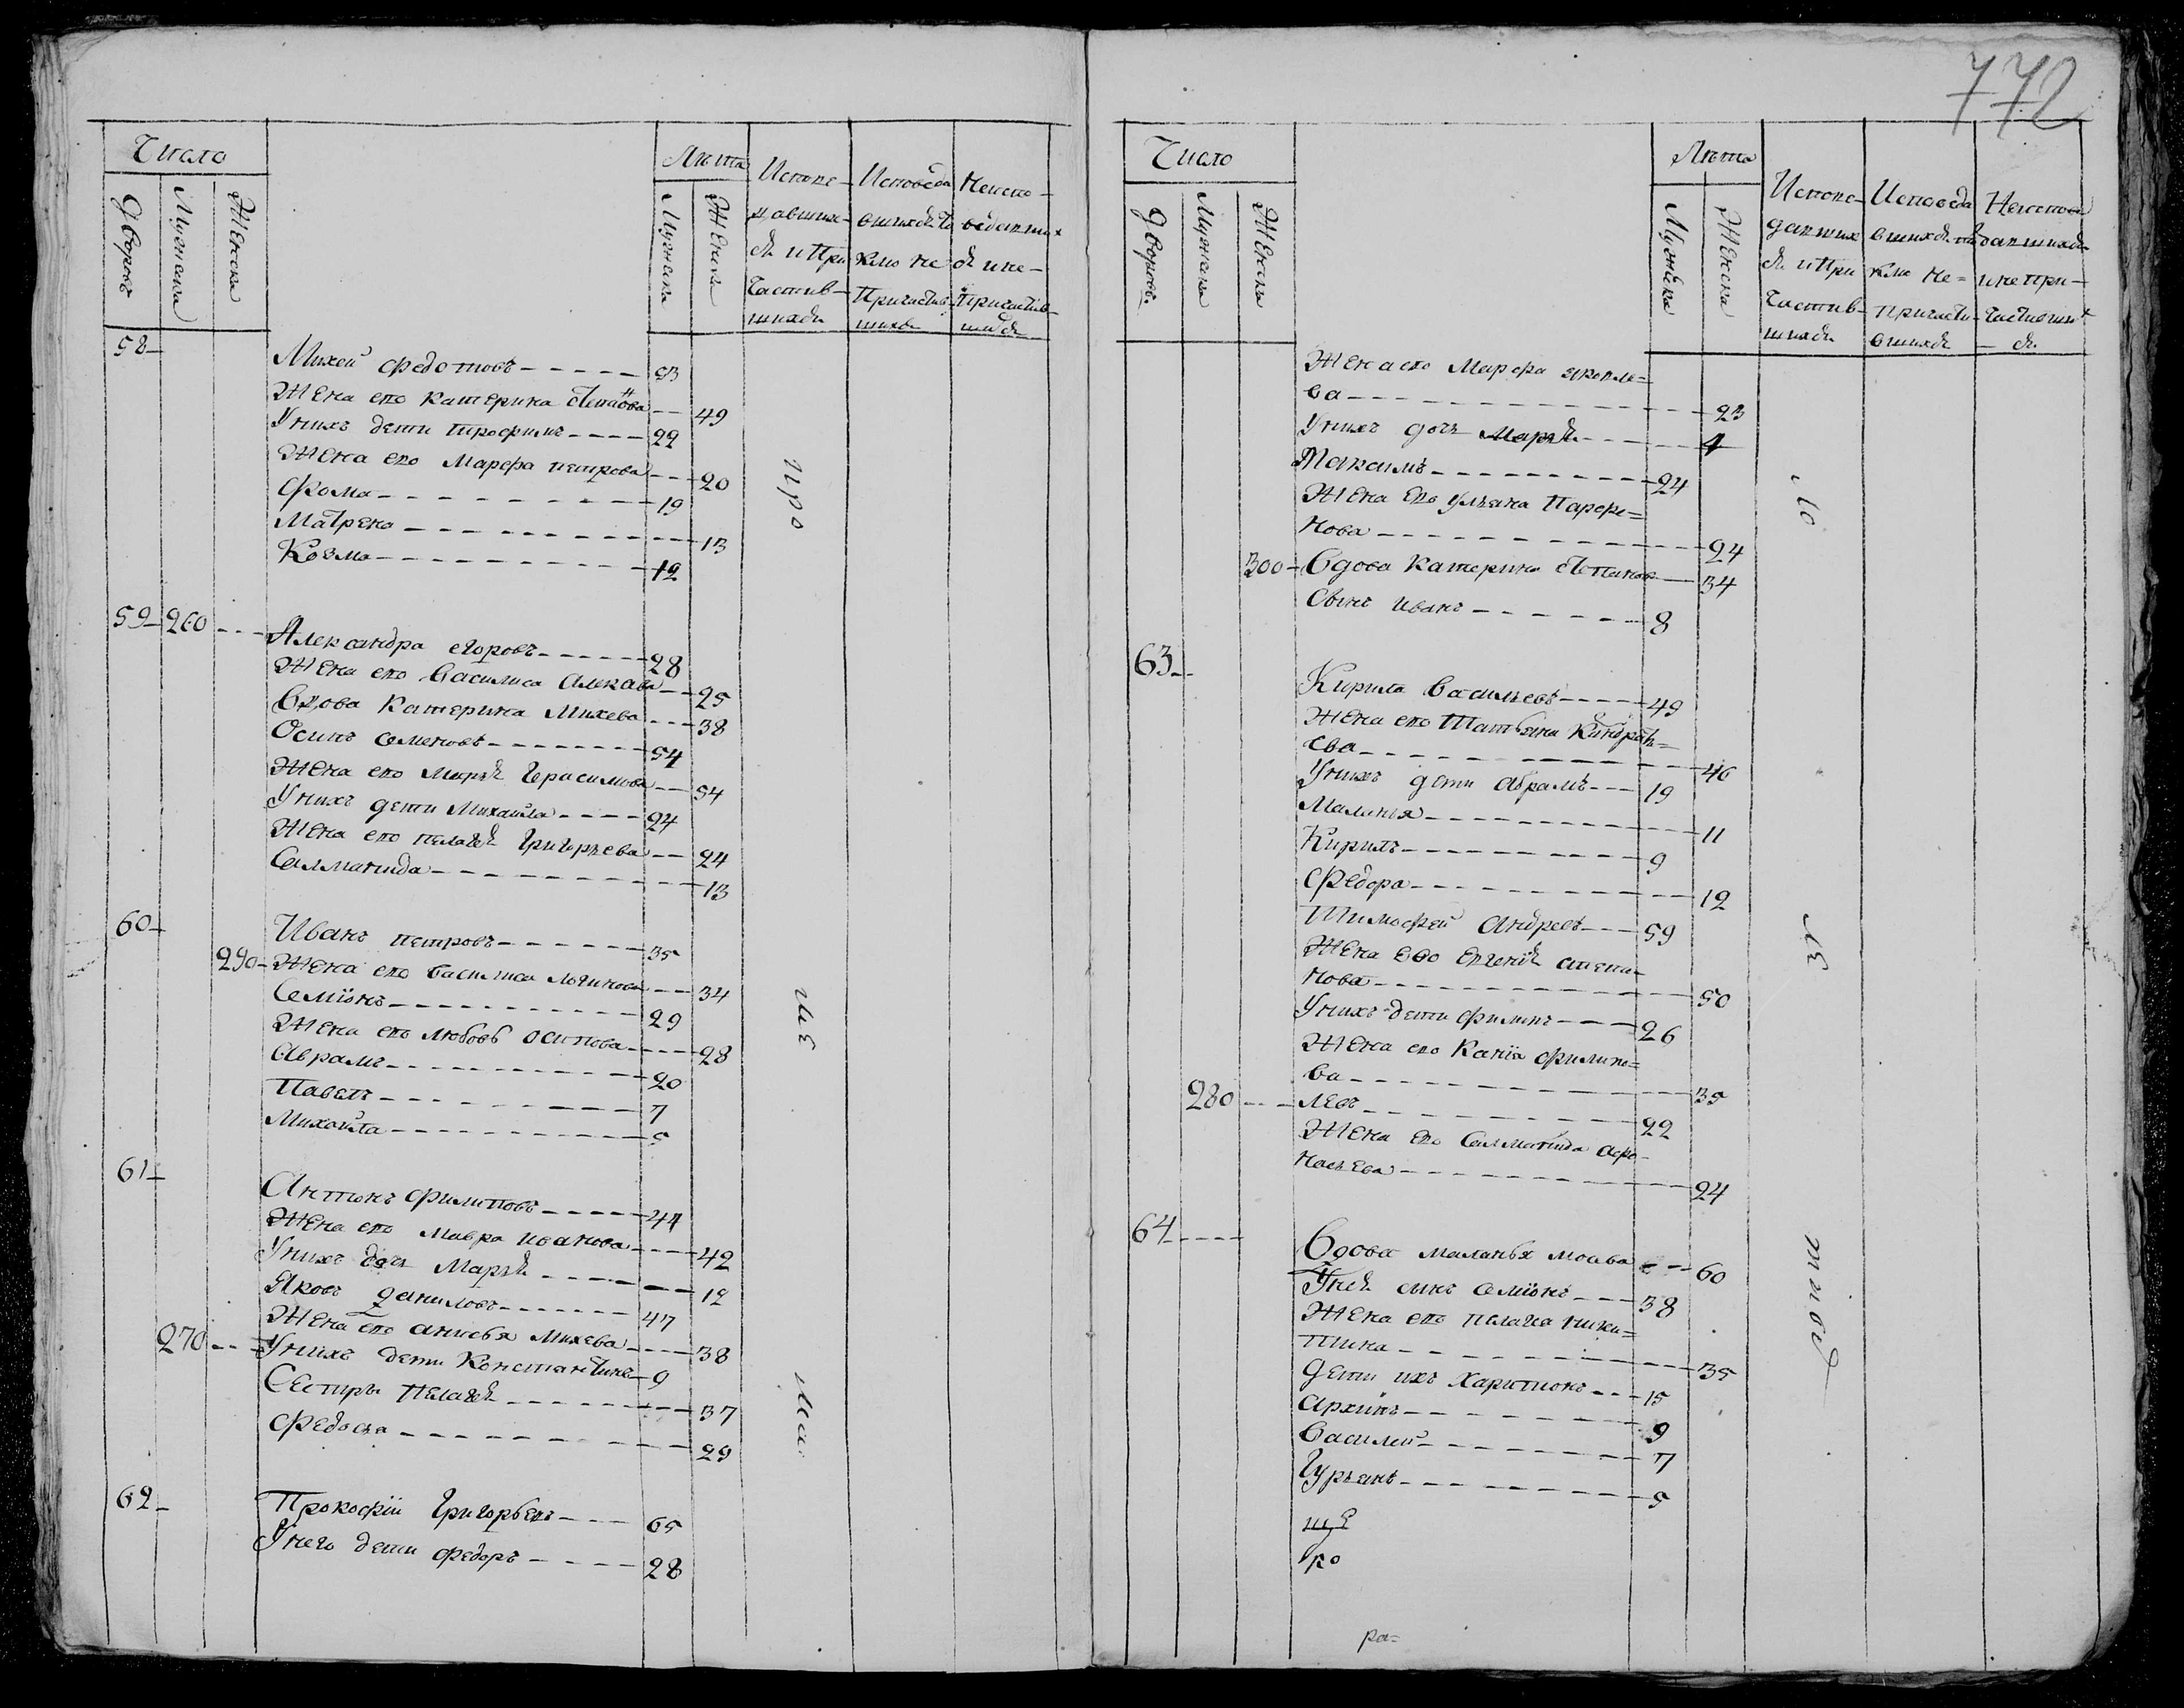 772
Число
Лѣта
Дворовъ
Мужеска
Женска
Мужеска
Женска
Исповедавшихся и Причастившихся
Исповедавшихся токмо не Причастившихся
Неисповедавшихся и не Причастившихся
58
Михей Федотовъ 53
Жена ево Катерина Степанова 49
У нихъ дети Трофимъ 22
Жена ево Марфа петрова 20
Фома 19
Матрена 13
Козма 12
59 260 Александра егоровъ 28
Жена ево Василиса Алексѣева 25
Вдова Катерина Михева 38
Осипъ Семеновъ 54
Жена ево Марья Герасимова 54
У нихъ дети Михайла 24
Жена ево пелагея Григорьева 24
Саламанида 13
60 Иванъ петровъ 35
290 Жена ево Василиса Логинова 34
Семіонъ 29
Жена ево Любовь осипова 28
Аврамъ 20
Павелъ 7
Михайла 5
61 Антонъ Филиповъ 44
Жена ево Мавра иванова 42
У нихъ дочь Марья 12
Яковъ даниловъ 47
Жена ево анисья Михева 38
270 У нихъ дети Константинъ 9
Сестры Пелагея 37
Федосья 29
62 Прокофій Григорьевъ 65
У него дети Федоръ 28
Число
Лѣта
Дворовъ
Мужеска
Женска
Мужеска
Женска
Исповедавшихся и При частившихся
Исповедавшихся токмо не причастившихся
Неисповедавшихся и не причастившихся
Жена ево Марфа яковле=
ва 23
У нихъ дочь Марья 4
Максимъ 24
Жена ево ульяна Парфе=
нова 24
300 Вдова Катерина Степанова 34
Сынъ иванъ 8
63
Кирила Васильевъ 49
Жена ево Татьяна Кондрать=
ева 46
У нихъ дети Абрамъ 19
Маланья 11
Кирилъ 9
Федора 12
Тимофей Андреевъ 59
Жена ево Евгенія степа=
нова 50
У нихъ дети филипъ 26
Жена ево Ксенія филипо=
ва 35
280 Левъ 22
Жена ево Саламанида афо=
насьева 24
64 Вдова маланья моиева 60
У ней сынъ семіонъ 38
Жена ево пелагея ники=
тина 35
Дети ихъ Харитонъ 15
Архипъ 9
Василей 7
Гурьянъ 5
ра=